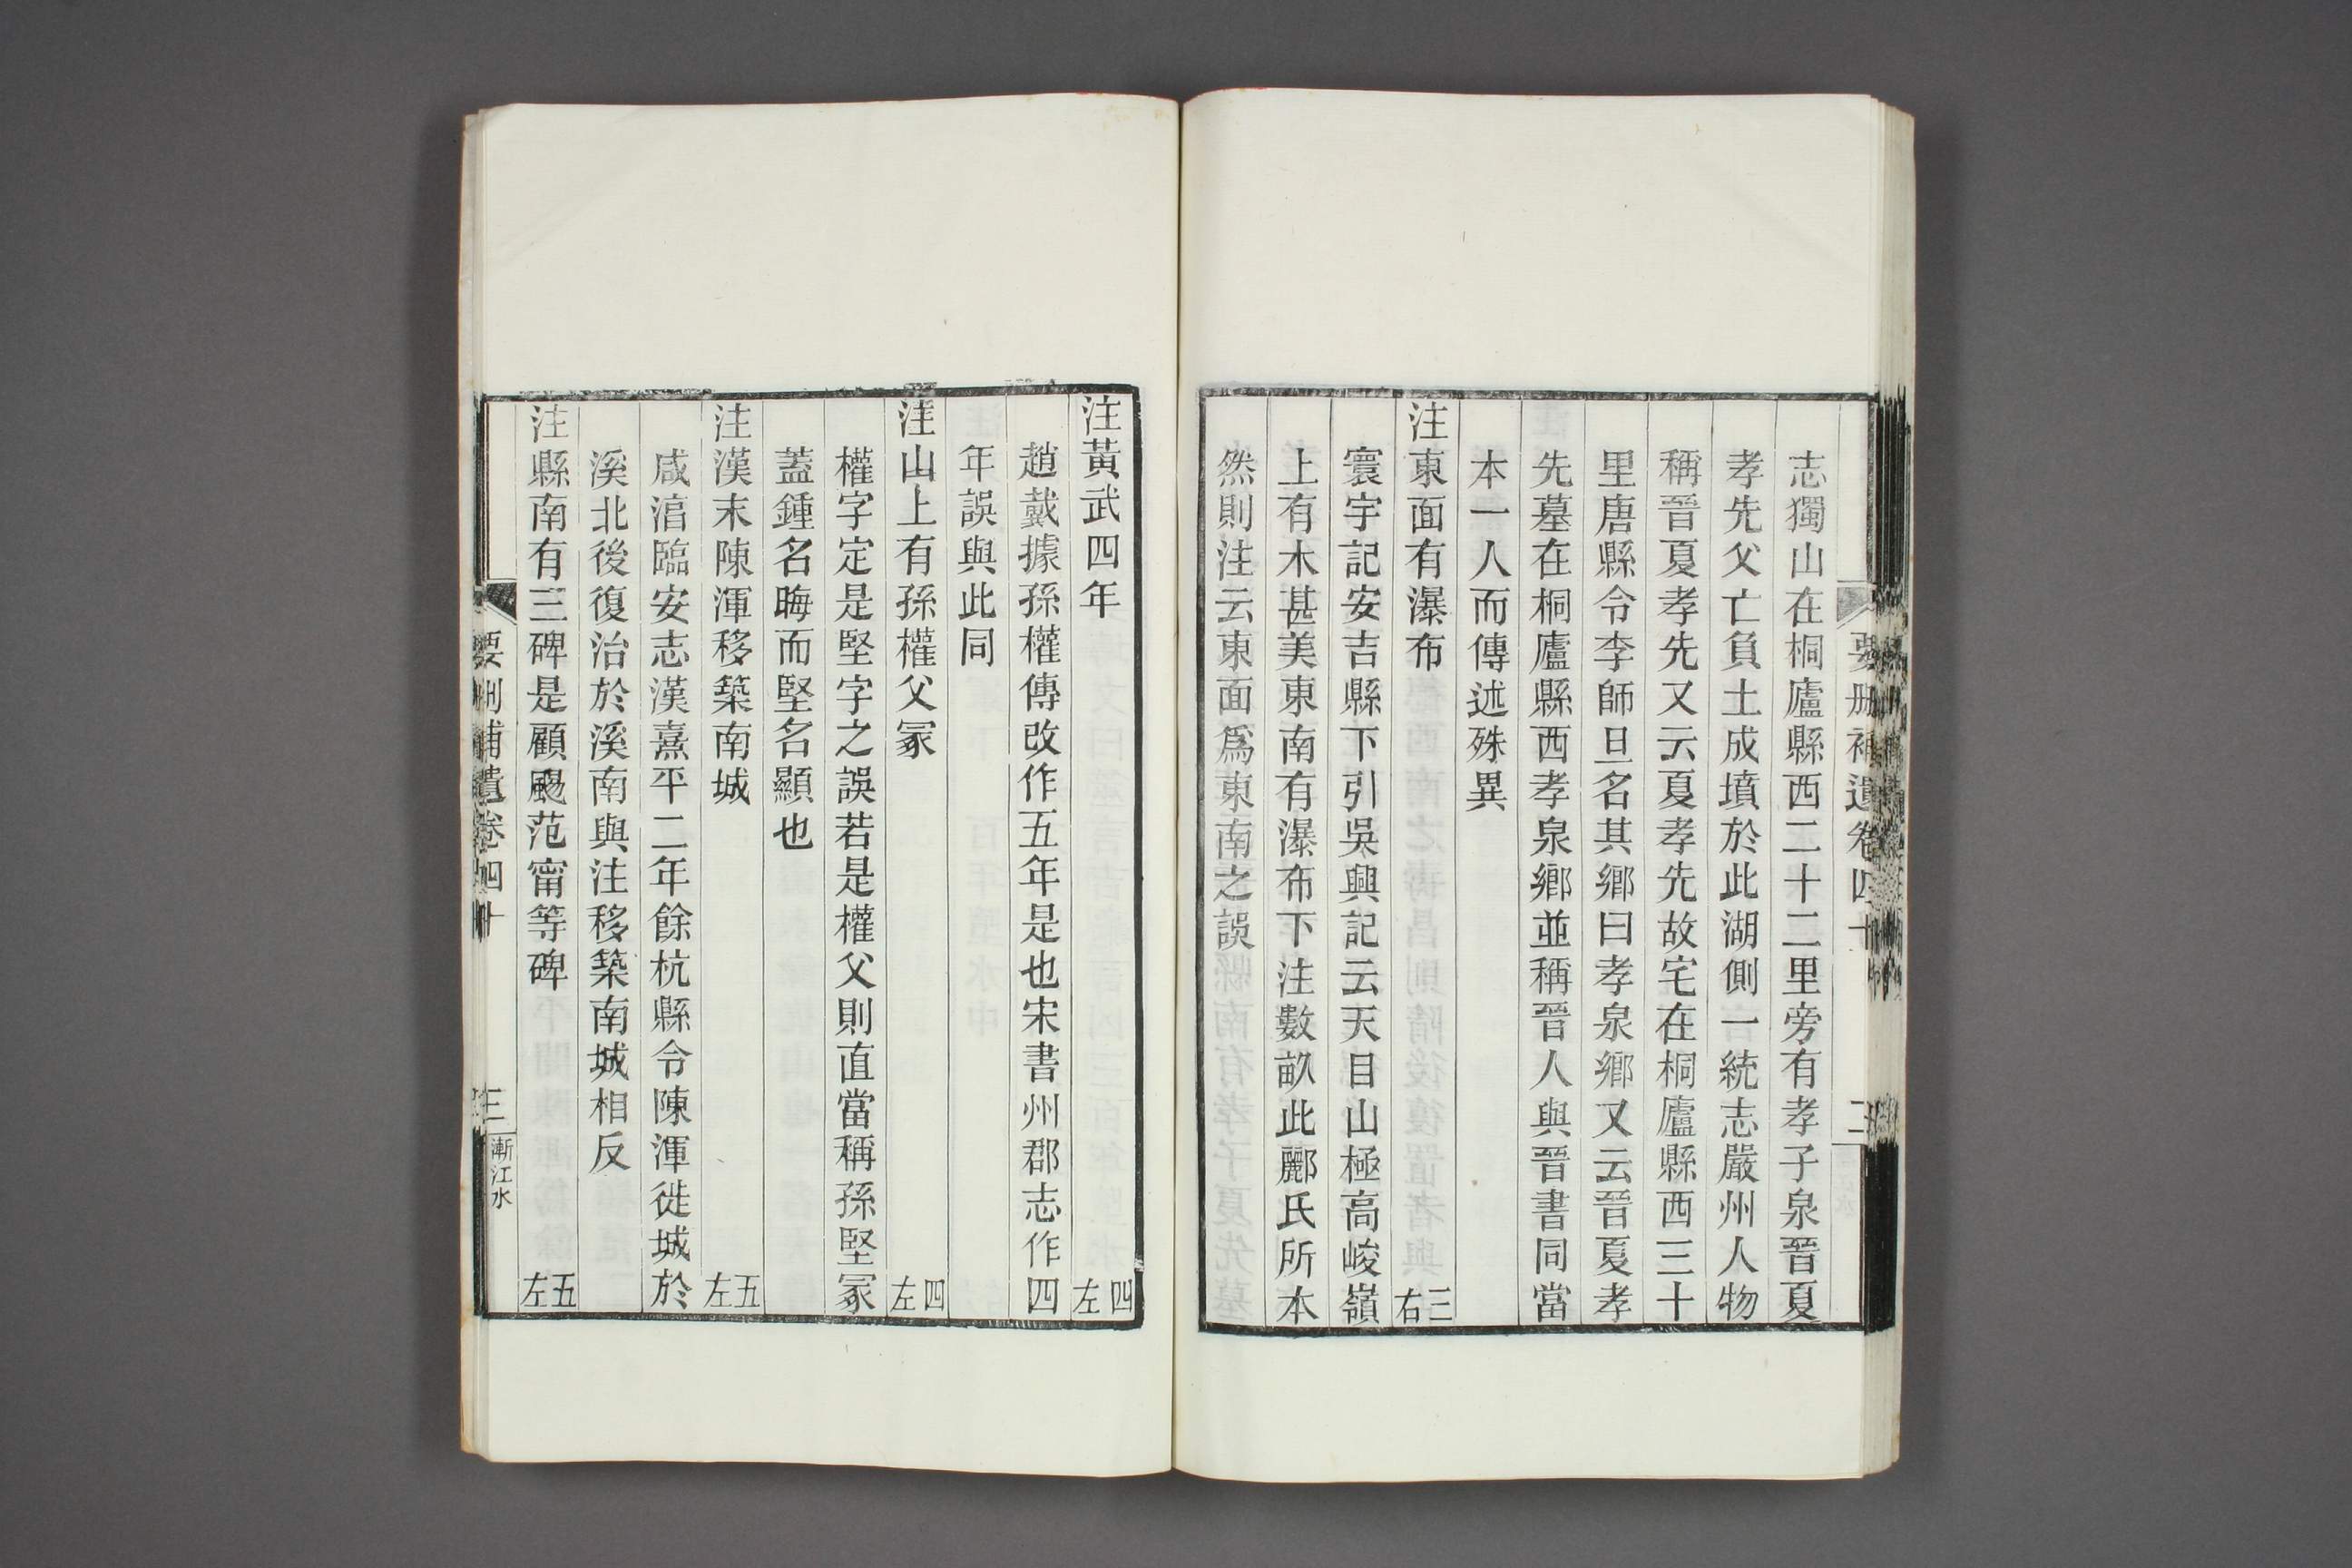 志獨山在桐廬縣西二十二里旁有孝子泉晉夏
孝先父亡負土成墳於此湖側一統志嚴州人物
稱晉夏孝先又云夏孝先故宅在桐廬縣西三十
里唐縣令李師旦名其鄉曰孝泉鄉又云晉夏孝
先墓在桐廬縣西孝泉鄉並稱晉人與晉書同當
本一人而傳述殊異
注東面有瀑布 三右
寰宇記安吉縣下引吳興記云天目山極高峻嶺
上有木甚美東南有瀑布下注數畝此酈氏所本
然則注云東面爲東南之誤
注黃武四年 四左
趙戴據孫權傳改作五年是也宋書州郡志作四
年誤與此同
注山上有孫權父冢 四左
權字定是堅字之誤若是權父則直當稱孫堅冢
蓋鍾名晦而堅名顯也
注漢末陳渾移築南城 五左
咸淳臨安志漢熹平二年餘杭縣令陳渾徙城於
溪北後復治於溪南與注移築南城相反
注縣南有三碑是顧颺范甯等碑 五左
要刪補遺卷四十 三 漸江水